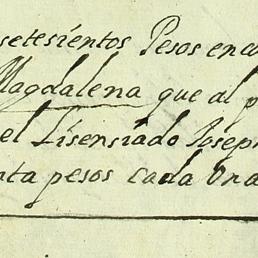 setesientos Pesos en ca
Magdalena que al p
el Lisensiado Joseph
nta pesos cada Una